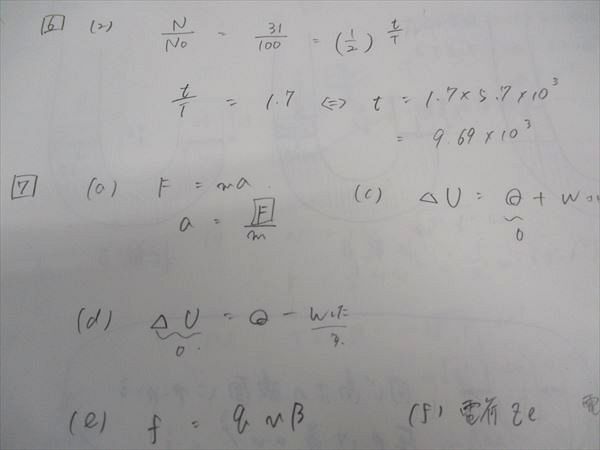 6 (2) N/N₀ = 31/100 = (1/2)^(t/T)
t/T = 1.7 ⇔ t = 1.7 × 5.7 × 10³
= 9.69 × 10³
7 (a) F = ma.
a = F/m
(c) ΔU = Q + W
0
(d) ΔU = Q - W
0.
(e) f = q v B
(f) 電荷 2e 電